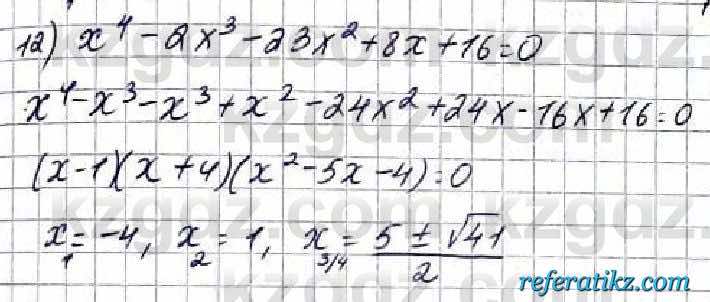 12) x⁴ - 2x³ - 23x² + 8x + 16 = 0
x⁴ - x³ - x³ + x² - 24x² + 24x - 16x + 16 = 0
(x - 1)(x + 4)(x² - 5x - 4) = 0
x₁ = -4, x₂ = 1, x₃/₄ = (5 ± √41)/2
referatikz.com